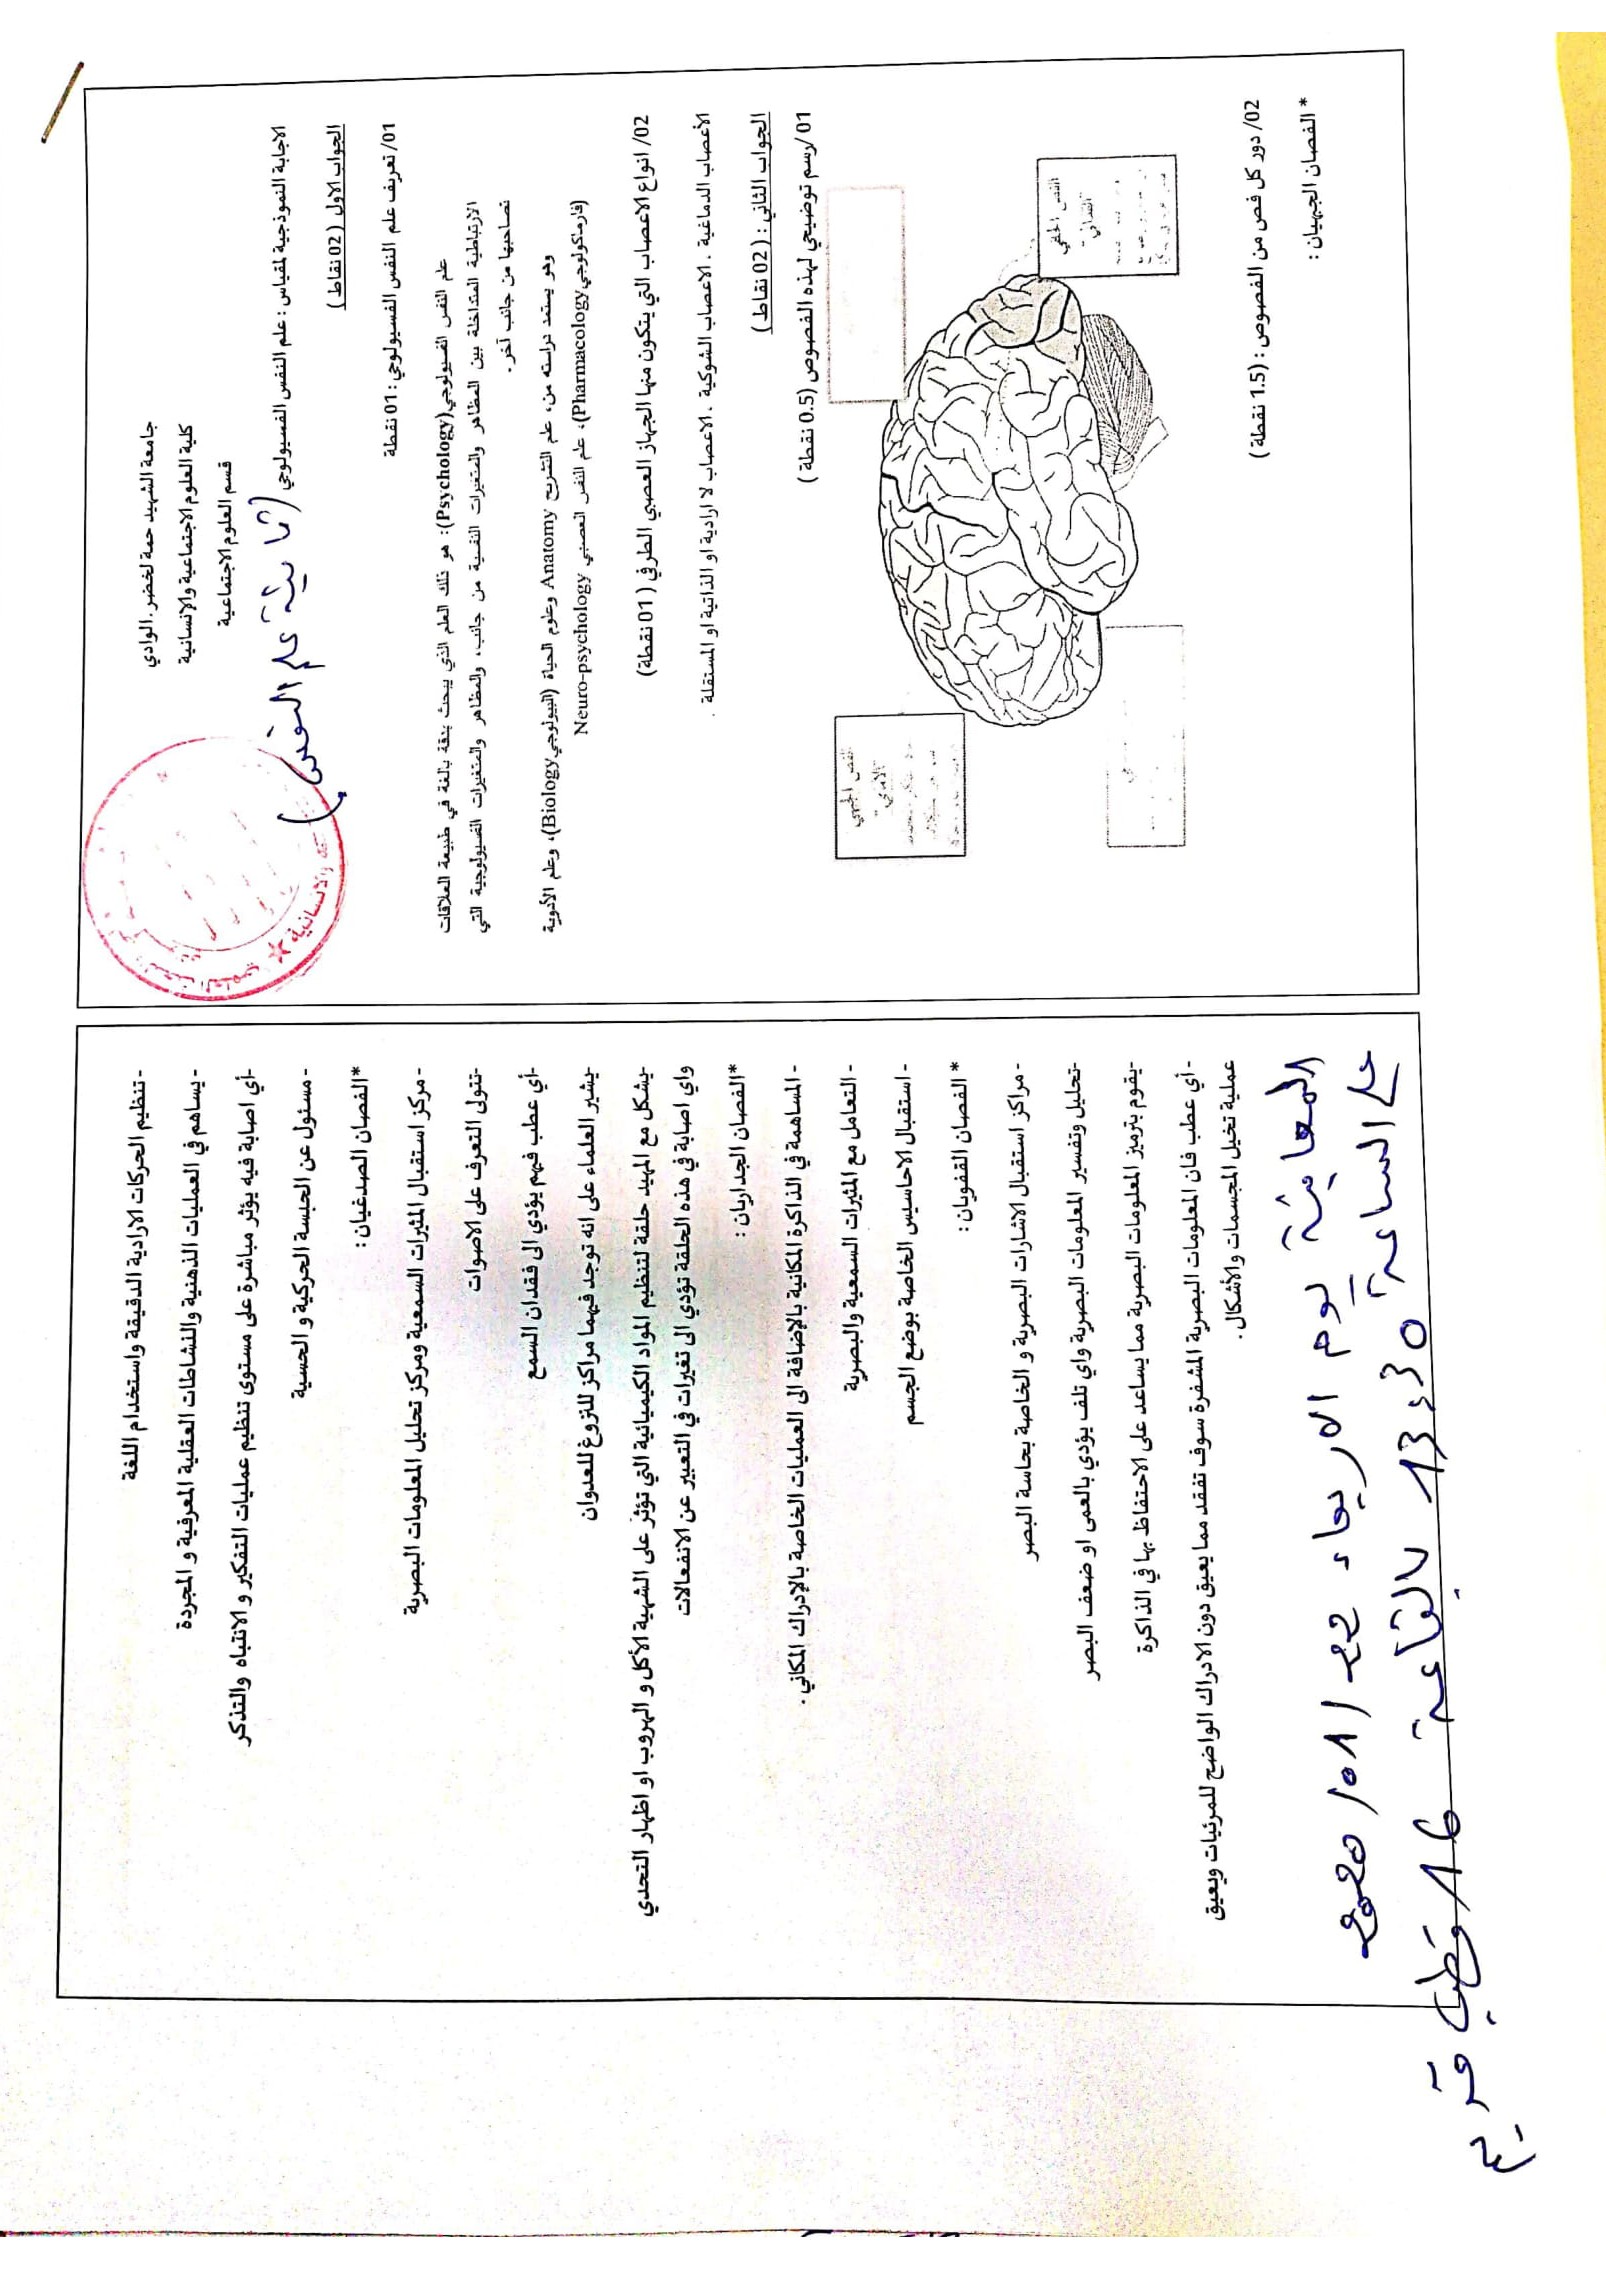 جامعة الشهيد حمة لخضر . الوادي
كلية العلوم الاجتماعية والانسانية
قسم العلوم الاجتماعية
الاجابة النموذجية لمقياس : علم النفس الفسيولوجي ( ثانية علم النفس )
الجواب الاول ( 02 نقاط )
01/ تعريف علم النفس الفسيولوجي : 01 نقطة
علم النفس الفسيولوجي (Psychology): هو ذلك العلم الذي يبحث بدقة بالغة في طبيعة العلاقات
الارتباطية المتداخلة بين المظاهر والمتغيرات النفسية من جانب، والمظاهر والمتغيرات الفسيولوجية التي
تصاحبها من جانب آخر.
وهو يستمد دراسته من، علم التشريح Anatomy وعلوم الحياة (البيولوجي Biology)، وعلم الأدوية
(فارماكولوجي Pharmacology)، علم النفس العصبي Neuro-psychology
02/ انواع الاعصاب التي يتكون منها الجهاز العصبي الطرفي ( 01 نقطة)
الأعصاب الدماغية . الاعصاب الشوكية . الاعصاب لا ارادية او الذاتية او المستقلة .
الجواب الثاني : ( 02 نقاط )
01 /رسم توضيحي لهذه الفصوص (0.5 نقطة )
الفص الخلفي
القذالي
الفص الجبهي
الأمامي
02/ دور كل فص من الفصوص : (1.5 نقطة )
* الفصان الجبهيان :
- تنظيم الحركات الارادية الدقيقة واستخدام اللغة
- يساهم في العمليات الذهنية والنشاطات العقلية المعرفية و المجردة
-أي اصابة فيه يؤثر مباشرة على مستوى تنظيم عمليات التفكير و الانتباه والتذكر
- مسئول عن الحبسة الحركية و الحسية
*الفصان الصدغيان :
- مركز استقبال المثيرات السمعية ومركز تحليل المعلومات البصرية
-تتولى التعرف على الاصوات
-أي عطب فيهم يؤدي الى فقدان السمع
-يشير العلماء على انه توجد فيهما مراكز للنزوغ للعدوان
-يشكل مع المهيد حلقة لتنظيم المواد الكيميائية التي تؤثر على الشهية الأكل و الهروب او اظهار التحدي
واي اصابة في هذه الحلقة تؤدي الى تغيرات في التعبير عن الانفعالات
*الفصان الجداريان :
- المساهمة في الذاكرة المكانية بالإضافة الى العمليات الخاصة بالإدراك المكاني .
- التعامل مع المثيرات السمعية والبصرية
- استقبال الاحاسيس الخاصة بوضع الجسم
* الفصان القفويان :
- مراكز استقبال الاشارات البصرية و الخاصة بحاسة البصر
-تحليل وتفسير المعلومات البصرية واي تلف يؤدي بالعمى او ضعف البصر
-يقوم بترميز المعلومات البصرية مما يساعد على الاحتفاظ بها في الذاكرة
- أي عطب فان المعلومات البصرية المشفرة سوف تفقد مما يعيق دون الادراك الواضح للمرئيات ويعيق
عملية تخيل المجسمات والأشكال .
المعاينة يوم الاربعاء 22/01/2020
على الساعة 13:30 بالقاعة 16 قطب